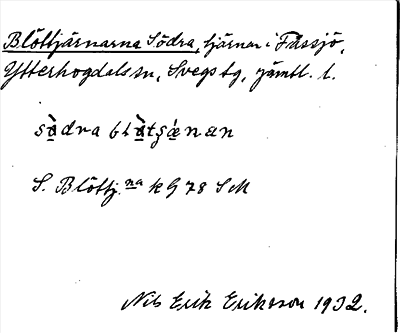 Blöttjärnarna Södra, tjärnar i Fåssjö,
Ytterhogdals sn, Svegs tg, Jämtl. l.
S. Blöttj.na k G 78 SM
Nils Erik Eriksson 1932.